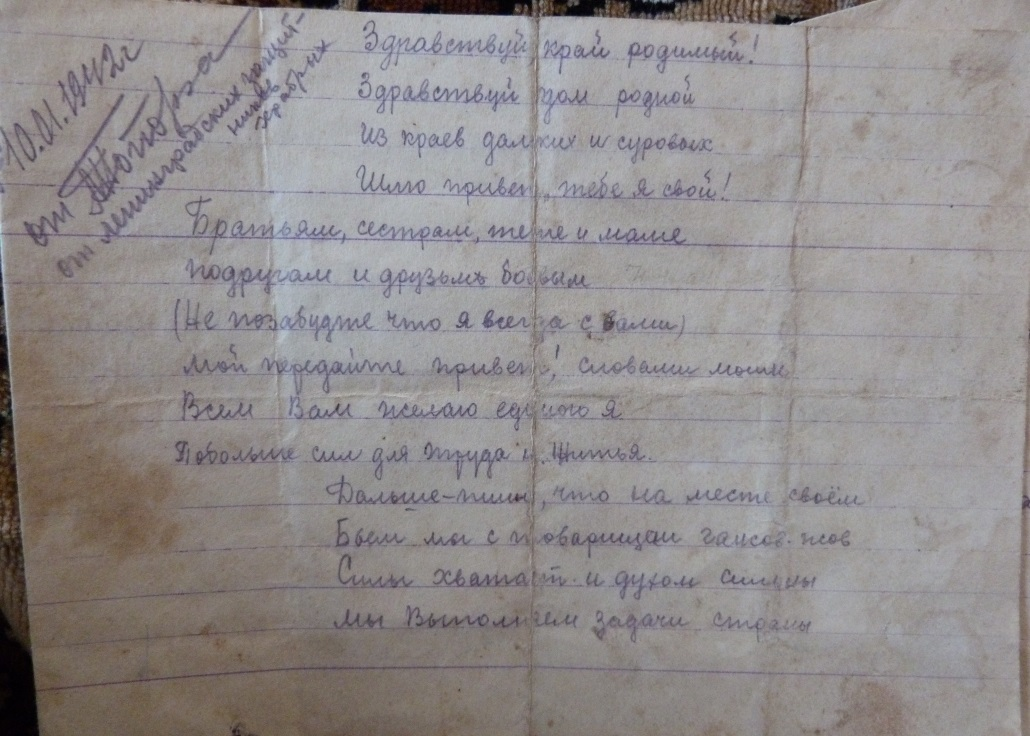 10.01.1942г
от
от ленинградских защит-
ников
храбрых
Здравствуй край родимый!
Здравствуй дом родной
Из краев далких и суровых
Шлю привет, тебе я свой!
Братьям, сестрам, тете и маме
подругам и друзьям боевым
(Не позабудте что я всегда с вами)
мой передайте привет! словами моими
Всем Вам желаю единого я
Побольше сил для труда и житья.
Дальше-пишу, что на месте своём
Бьем мы с товарищем гансов.
Силы хватает и духом сильны
мы Выполняем задачи страны